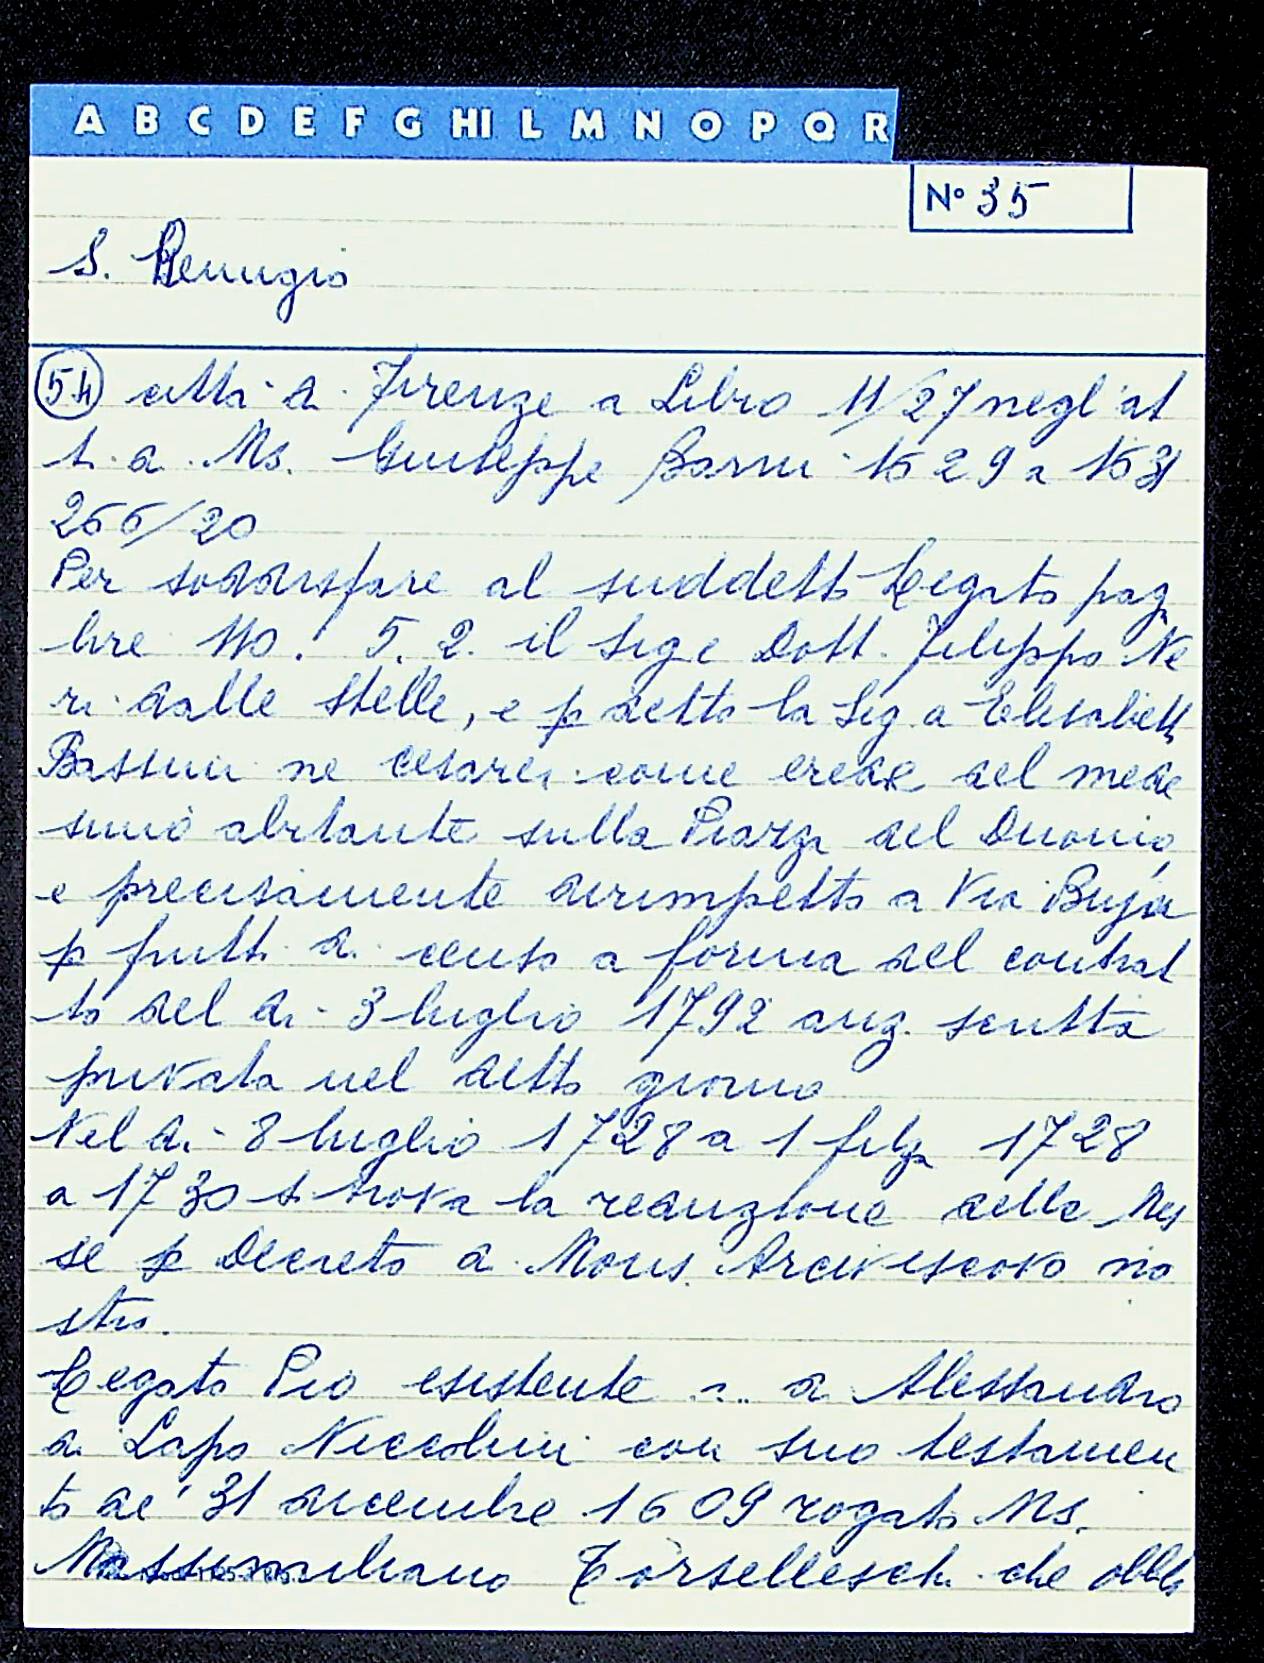 A B C D E F G HI L M N O P Q R
N° 35
S. Remigio
54 citta di Firenze a Libro 11/27 negl'at
ti di Ms. Giuseppe Barni 1529 a 1531
266/20
Per soddisfare al suddetto Legato pag
lire 110. 5. 2. il Sig e Dott. Filippo Ne
ri dalle Stelle, e p detto la Sig a Elisabett
Bassini ne Cesarei come erede del mede
simo abitante sulla Piazza del Duomo,
e precisamente dirimpetto a Via Buja
p frutti di censo a forma del contrat
to del di 3 luglio 1792 anz. scritta
privata nel detto giorno
Nel di 8 luglio 1728 a 1 filza 1728
a 1730 si trova la reduzione delle Mes
se p Decreto di Mons. Arcivescovo no
stro.
Legato Pio esistente di Alessandro
di Lapo Niccolini con suo testamen
to de' 31 dicembre 1609 rogato Ms.
Massimiliano Torselleschi che obbli